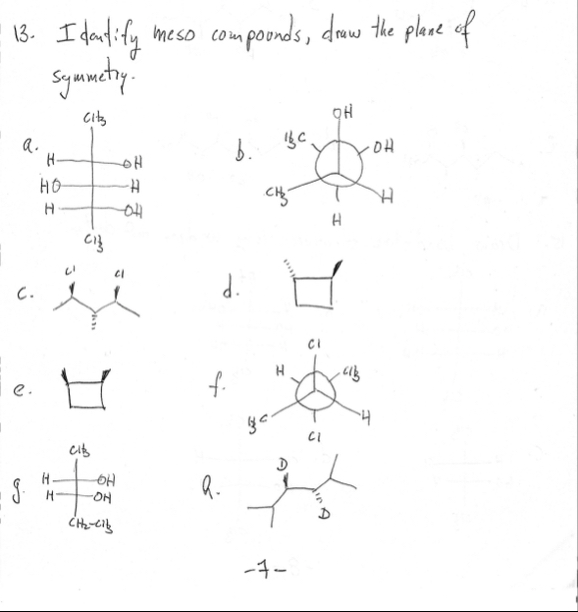 13. Identify meso compounds, draw the plane of
symmetry.
a.
CH3
H OH
HO H
H OH
CH3
b.
OH
H3C OH
CH3 H
H
c.
Cl Cl
d.
e.
f.
Cl
H CH3
H3C H
Cl
g.
CH3
H OH
H OH
CH2-CH3
h.
D
D
-7-